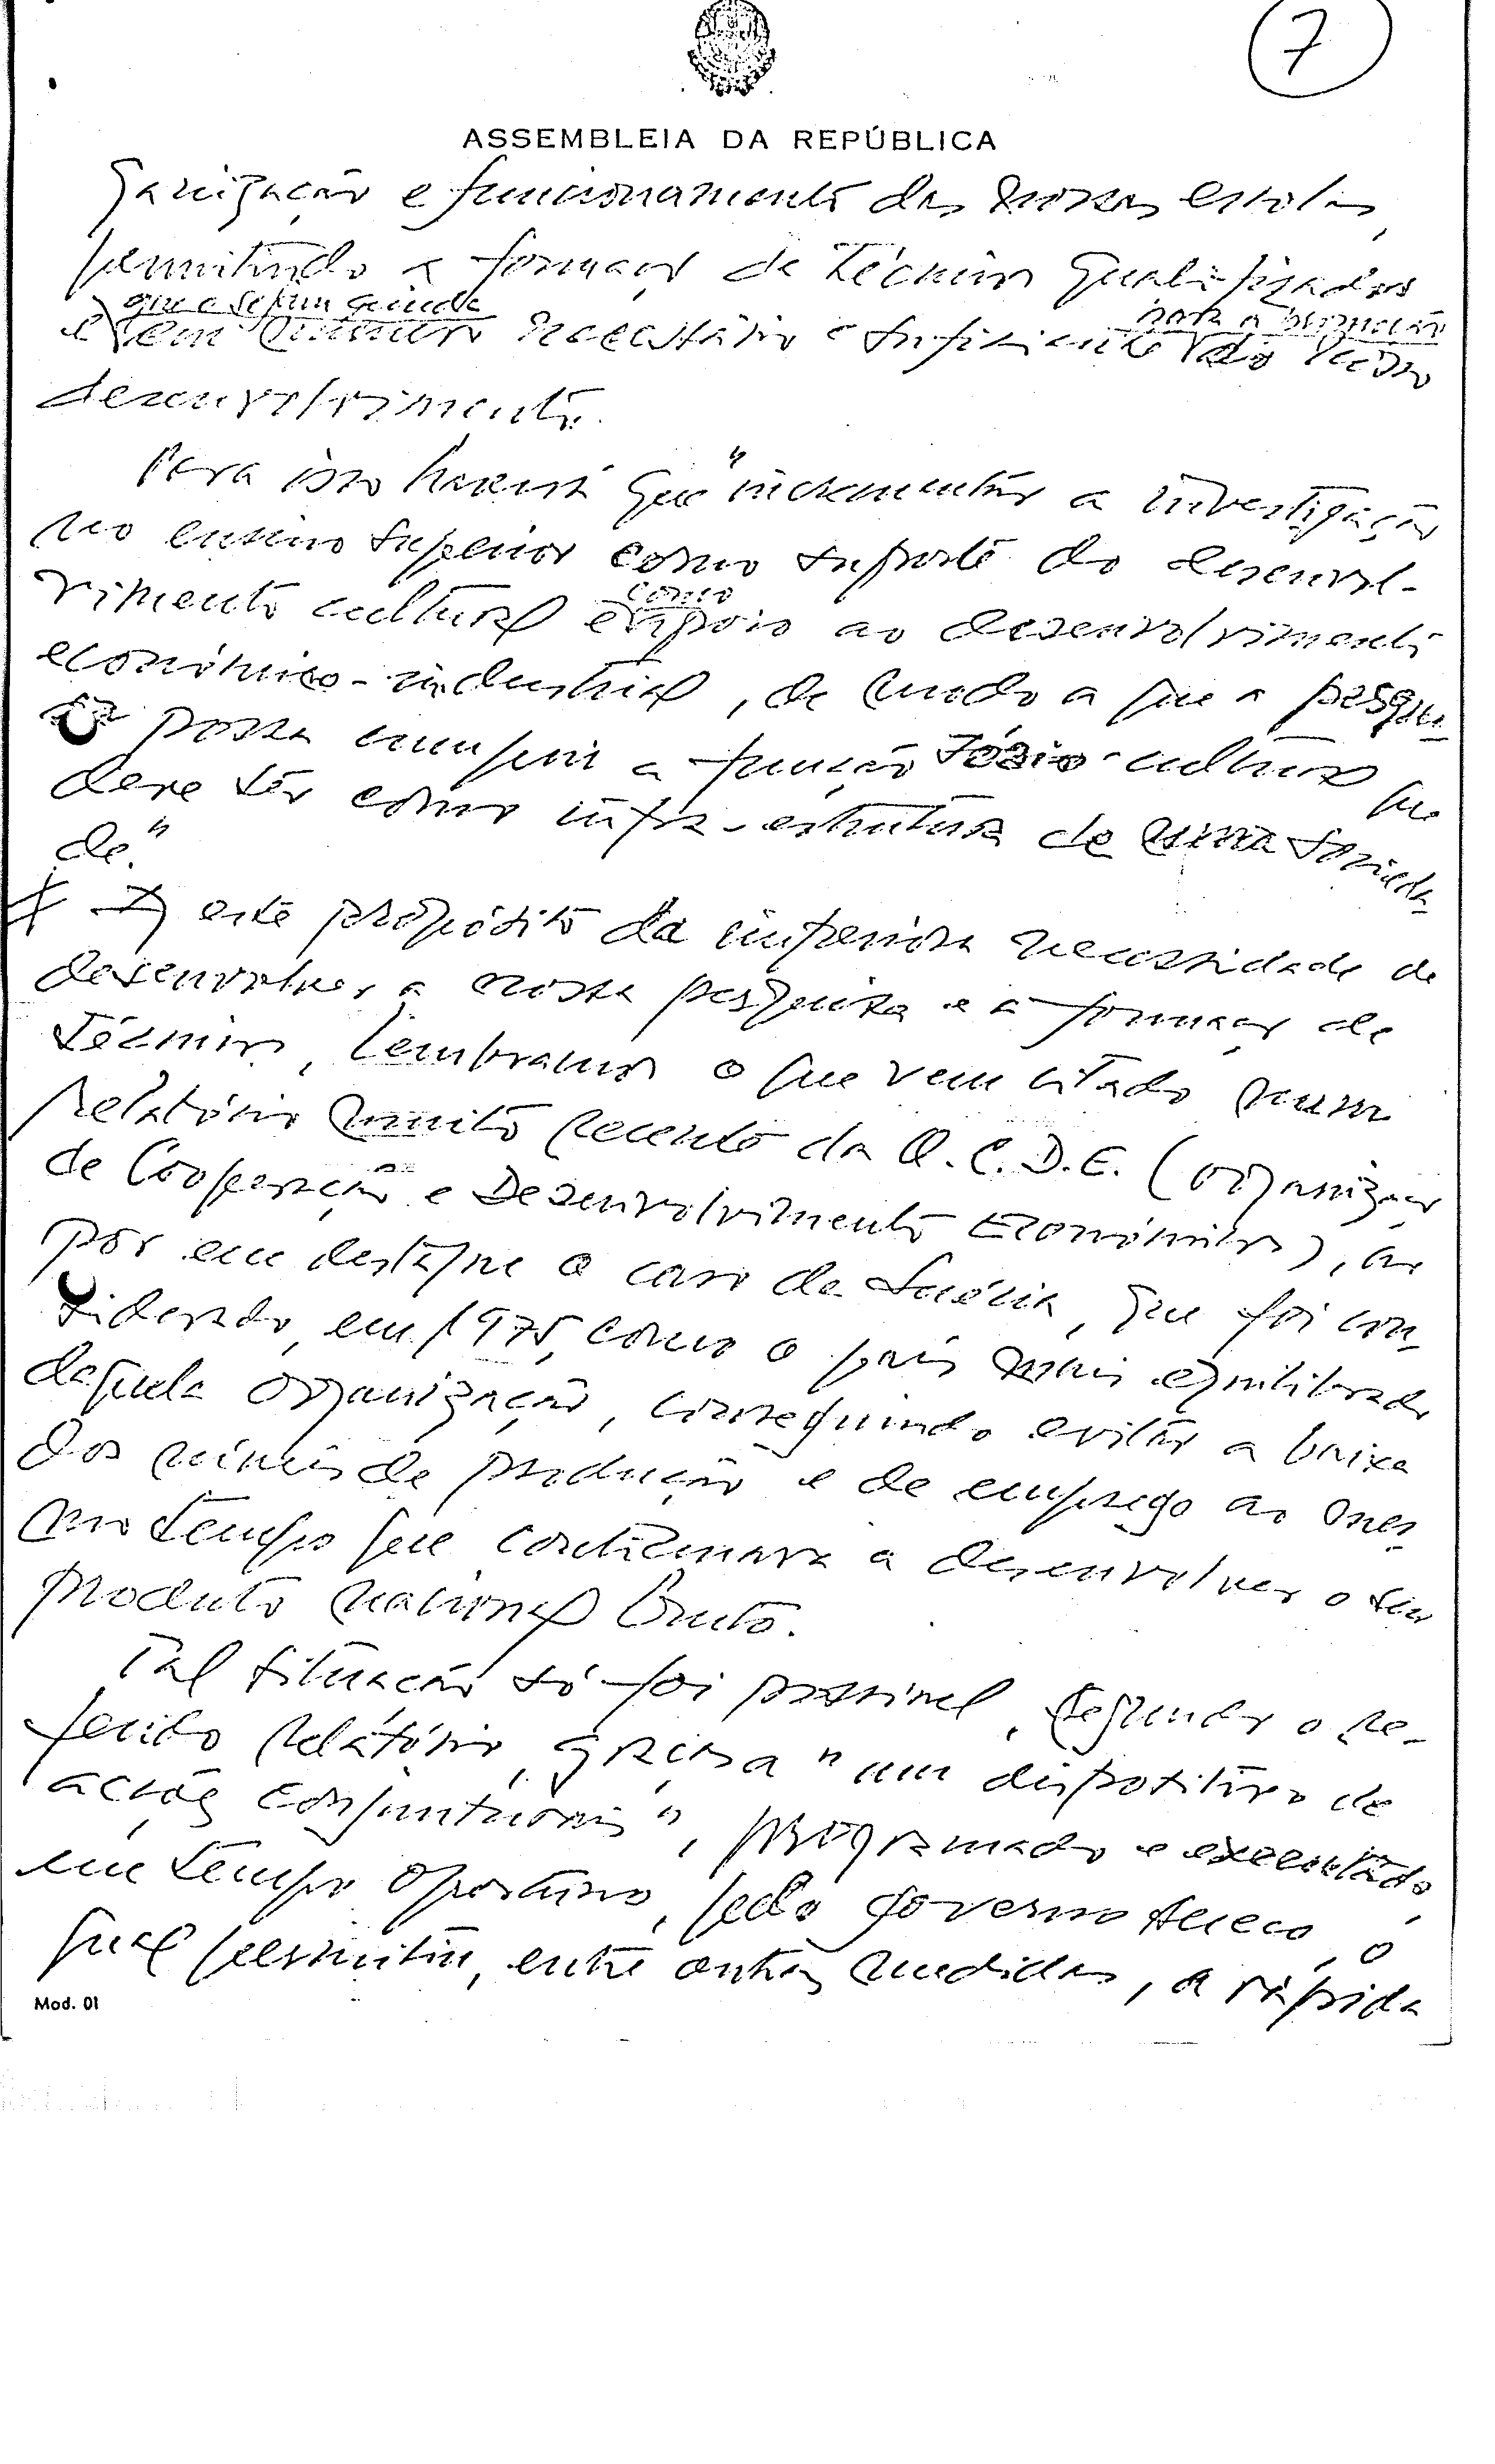 7
ASSEMBLEIA DA REPÚBLICA
ganização e funcionamento das nossas escolas,
permitindo a formação de técnicos qualificados
que o sejam ainda para a
e em número necessário e suficiente do
desenvolvimento.
Para isso haverá que "incrementar a investigação
no ensino superior como suporte do desenvol-
como
vimento cultural e apoio ao desenvolvimento
económico-industrial, de modo a que a pesqui-
sa possa cumprir a função sócio-cultural que
deve ter como infra-estrutura de uma socieda-
de."
A este propósito da imperiosa necessidade de
desenvolver a nossa pesquisa e a formação de
técnicos, lembramos o que vem citado num
relatório muito recente da O.C.D.E. (organização
de Cooperação e Desenvolvimento Económico), ao
pôr em destaque o caso da Suécia, que foi con-
siderado, em 1975, como o país mais equilibrado
daquela organização, conseguindo evitar a baixa
dos níveis de produção e de emprego ao mes-
mo tempo que continuava a desenvolver o seu
produto nacional bruto.
Tal situação só foi possível, segundo o re-
ferido relatório, graças a "um dispositivo de
acções conjunturais", programado e executado,
em tempo oportuno, pelo governo sueco, o
qual permitiu, entre outras medidas, a rápida
Mod. 01